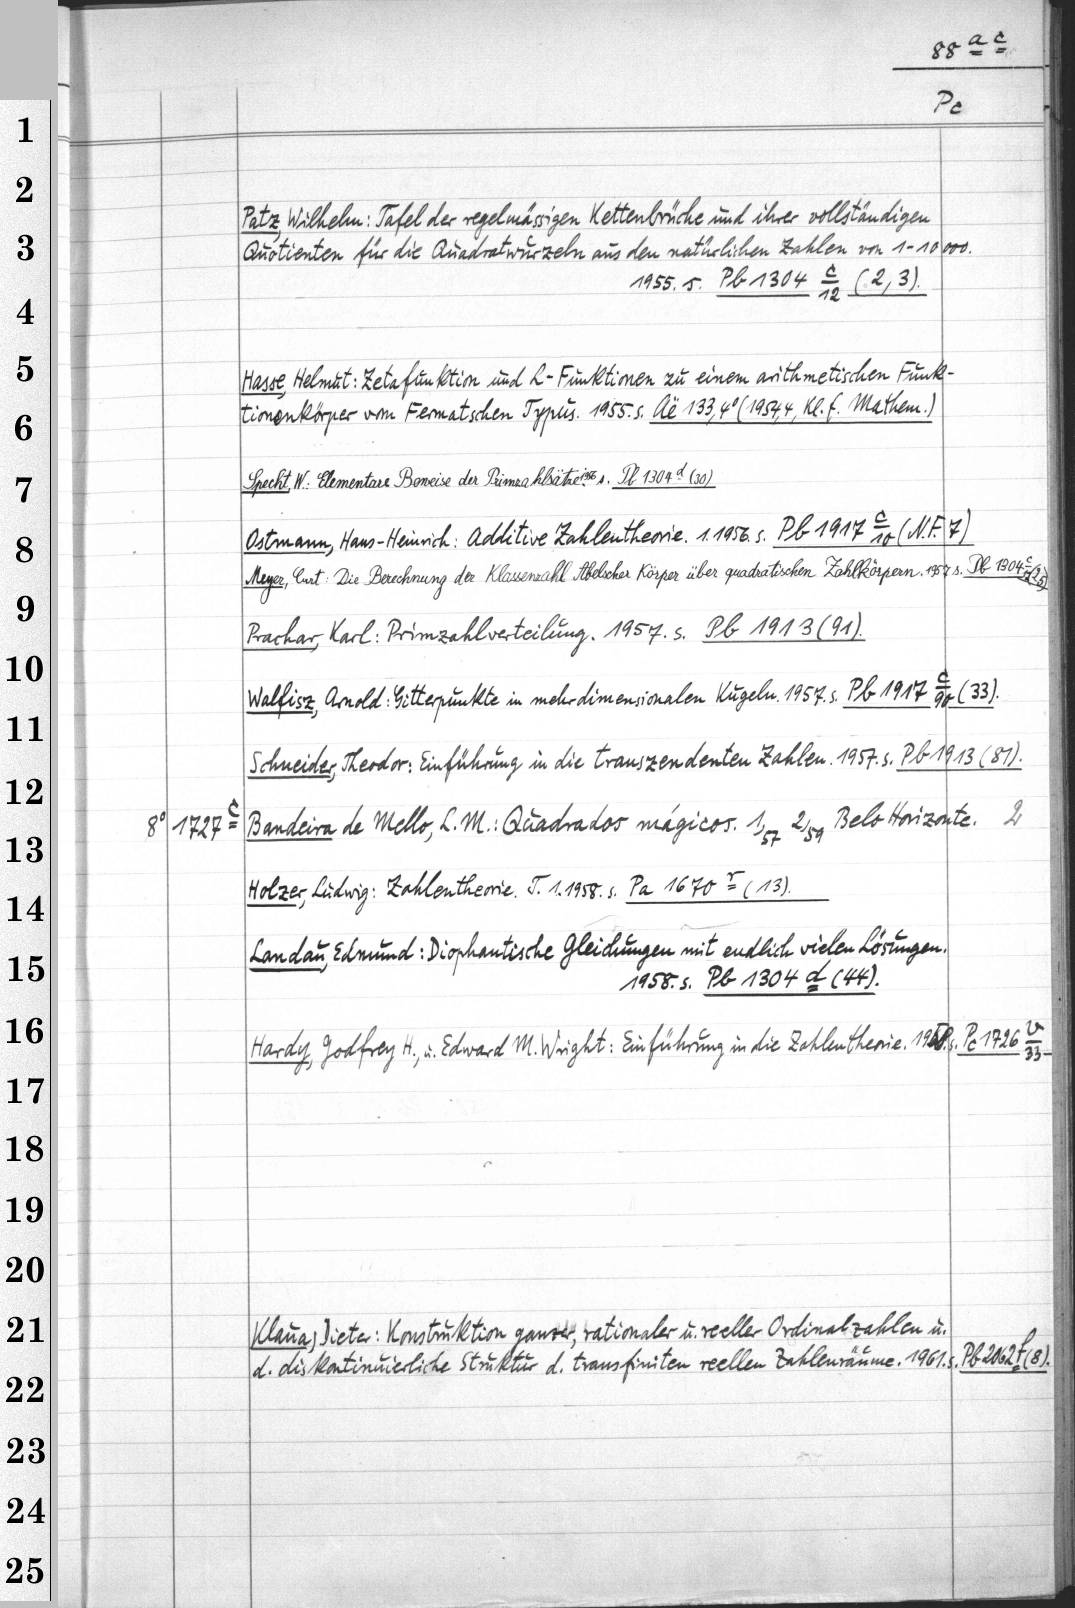 88 a c
Pc
1
2
Patz, Wilhelm: Tafel der regelmässigen Kettenbrüche und ihrer vollständigen
3
Quotienten für die Quadratwurzeln aus den natürlichen Zahlen von 1-10000.
1955. s. Pb 1304 c/12 (2, 3).
4
5
Hasse, Helmut: Zetafunktion und L-Funktionen zu einem arithmetischen Funk-
6
tionenkörper vom Fermatschen Typus. 1955. s. Aë 133,4° (1954,4, Kl. f. Mathem.)
7
Specht, W.: Elementare Beweise der Primzahlsätze. 1956 s. Pb 1304 d (30)
8
Ostmann, Hans-Heinrich: Additive Zahlentheorie. 1. 1956. s. Pb 1917 c/10 (N.F. 7)
Meyer, Curt: Die Berechnung der Klassenzahl Abelscher Körper über quadratischen Zahlkörpern. 1957 s. Pb 1304
9
Prachar, Karl: Primzahlverteilung. 1957. s. Pb 1913 (91).
10
Walfisz, Arnold: Gitterpunkte in mehrdimensionalen Kugeln. 1957. s. Pb 1917 c/90 (33).
11
Schneider, Theodor: Einführung in die transzendenten Zahlen. 1957. s. Pb 1913 (81).
12
8° 1727 c Bandeira de Mello, L. M.: Quadrados mágicos. 1/57 2/59 Belo Horizonte. 2
13
Holzer, Ludwig: Zahlentheorie. T. 1. 1958. s. Pa 1670 r (13).
14
Landau, Edmund: Diophantische Gleichungen mit endlich vielen Lösungen.
15
1958. s. Pb 1304 d (44).
16
Hardy, Godfrey H., u. Edward M. Wright: Einführung in die Zahlentheorie. 1958. s. Pc 1726 v/33
17
18
19
20
21
Klaua, Dieter: Konstruktion ganzer, rationaler u. reeller Ordinalzahlen u.
d. diskontinuierliche Struktur d. transfiniten reellen Zahlenräume. 1961. s. Pb 2062 f (8).
22
23
24
25